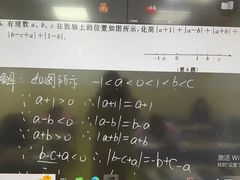 有理数a、b、c在数轴上的位置如图所示,化简|a+1|+|a-b|+|a+b|+
|b-c+a|+|1-b|.
-1 a 0 1 b c
(第6题)
解: 如图所示 -1<a<0<1<b<c
∵ a+1>0 ∴|a+1|=a+1
∵ a-b<0 ∴|a-b|=b-a
∵ a+b>0 ∴|a+b|=a+b
∵ b-c+a<0 ∴|b-c+a|=-b+c-a
激活 Wi